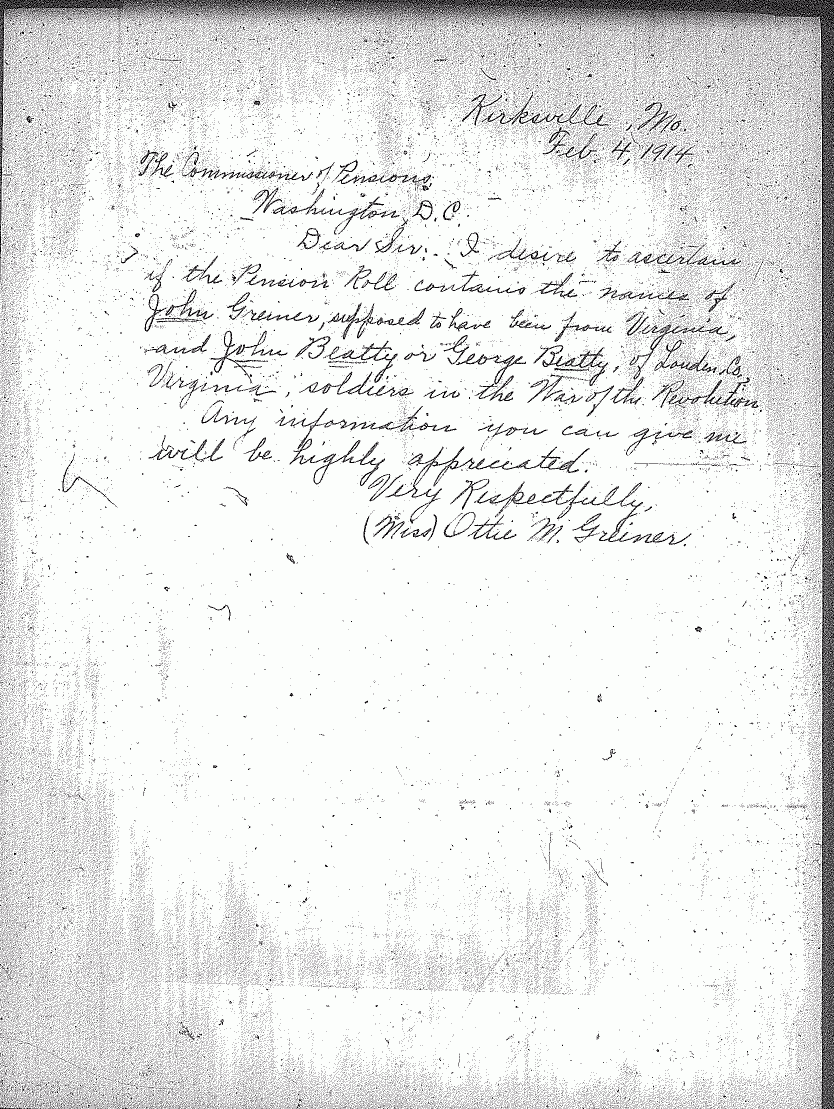 Kirksville, Mo.
Feb. 4, 1914.
The Commissioner of Pensions,
Washington, D.C.
Dear Sir:- I desire to ascertain
if the Pension Roll contains the names of
John Greiner, supposed to have been from Virginia,
and John Beatty or George Beatty, of Louden Co.,
Virginia, soldiers in the War of the Revolution.
Any information you can give me
will be highly appreciated.
Very Respectfully,
(Miss) Ottie M. Greiner.